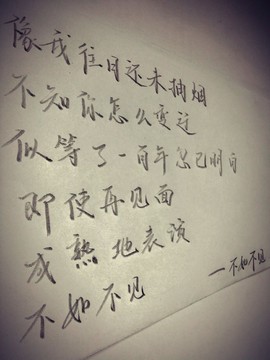 像我往日还未抽烟
不知你怎么变迁
似等了一百年忽已明白
即使再见面
成熟地表演
不如不见
——不如不见